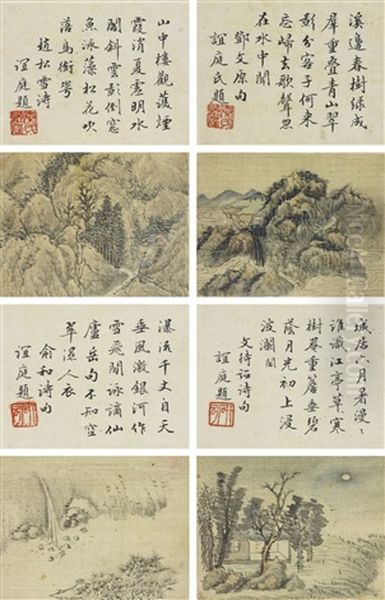 溪邊春樹綠成
羣重叠青山翠
影分客子何來
忘歸去歌聲忽
在水中聞
鄧文原句
誼庭氏題
山中樓觀護煙
霞消夏明水
閣斜雲影倒窓
魚泳藻松花吹
落鳥銜
趙松雪詩
誼庭題
城居六月暑漫〻
誰識江亭草寒
樹重簷垂碧
蔭月光初上漫
波瀾
文待詔詩句
誼庭題
瀑流千丈自天
垂風激銀河作
雪飛閒詠謫仙
廬岳句不知空
翠濕人衣
俞和詩句
誼庭題